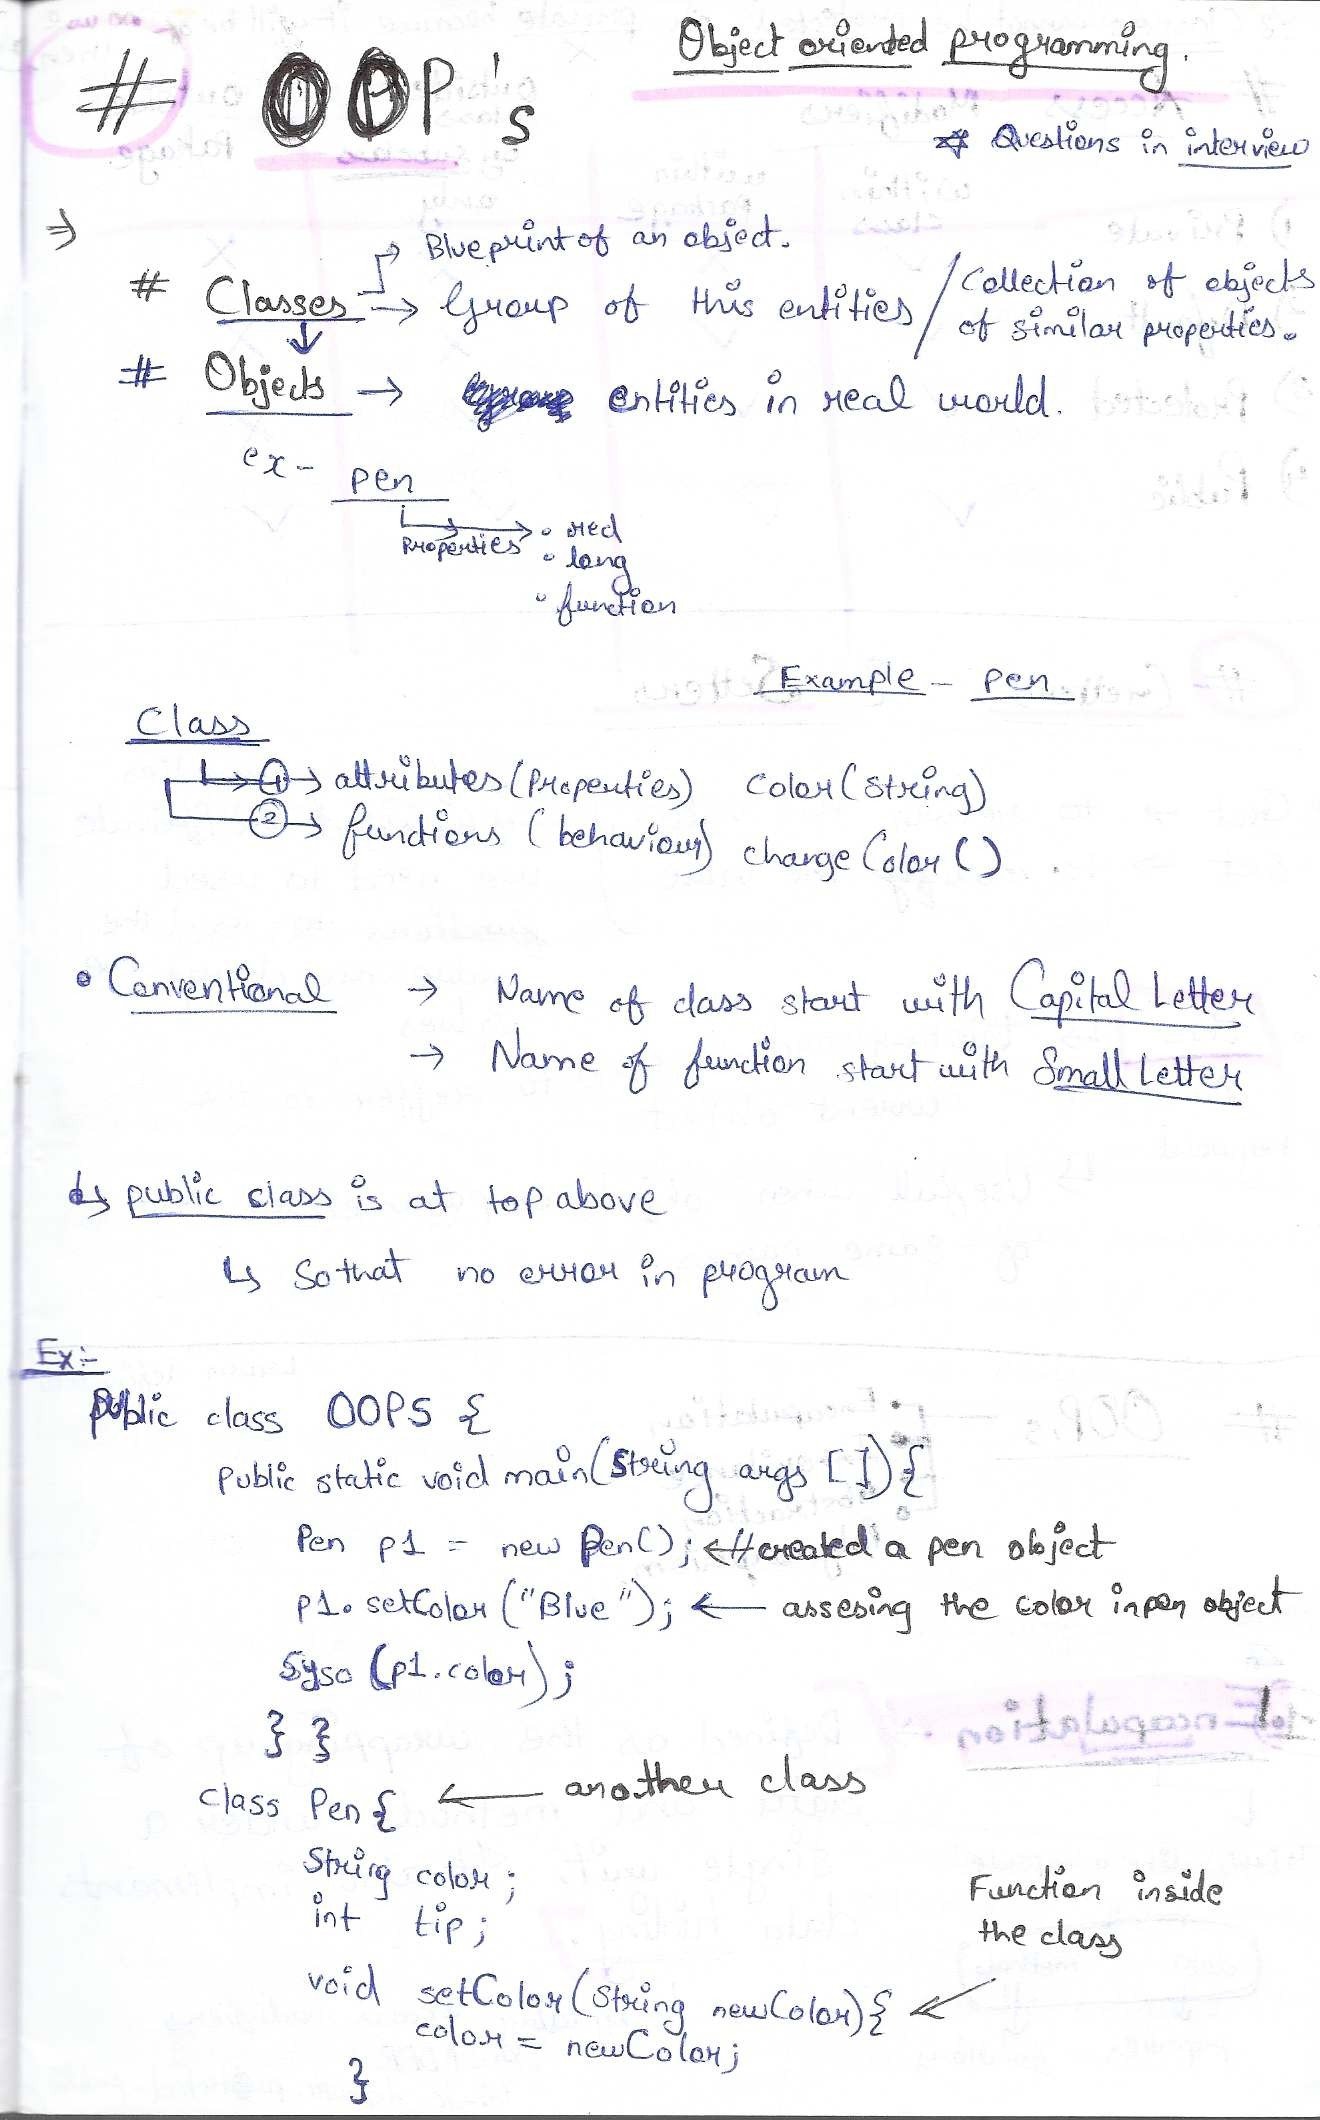 Object oriented programming.
# OOP's
Questions in interview
⇒
Blueprint of an object.
# Classes → Group of this entities / Collection of objects
of similar properties.
# Objects → entities in real world.
ex - pen
Properties • red
• long
• function
Example - pen
Class
① → attributes (Properties) Color (String)
② → functions (behaviour) change Color ()
• Conventional → Name of class start with Capital Letter
→ Name of function start with Small Letter
↳ public class is at top above
↳ So that no error in program
Ex:-
Public class OOPS {
Public static void main(String args []) {
Pen p1 = new Pen(); ← // created a pen object
p1. setColor ("Blue"); ← assesing the color in pen object
Syso (p1.color);
} }
class Pen { ← another class
String color;
int tip;
Function inside
the class
void setColor (String newColor) { ←
color = newColor;
}